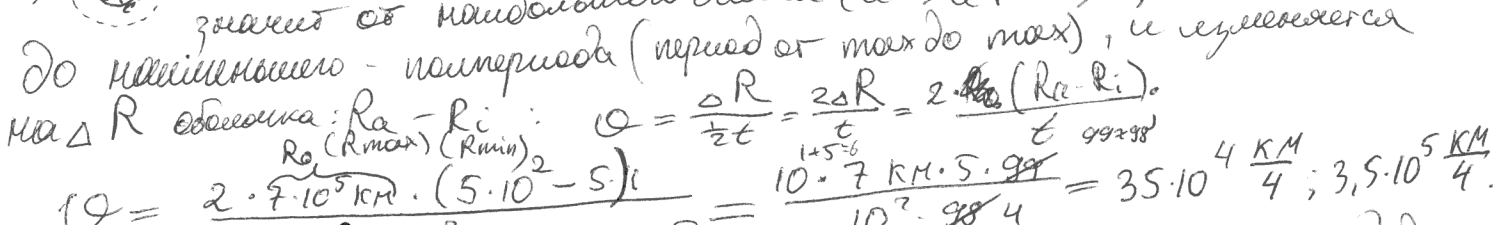 значит от наибольшего
до наименьшего - полпериода (период от max до max), и изменяется
на △R оболочка: Ra - Ri : υ = △R / ½t = 2△R / t = 2· (Ra - Ri) / t.
R⊙ (Rmax) (Rmin) 1+5=6 99≈98
υ = 2·7·10⁵ км·(5·10² - 5) = 10·7 км·5·99 / 10²·98 ч = 35·10⁴ км/ч; 3,5·10⁵ км/ч.